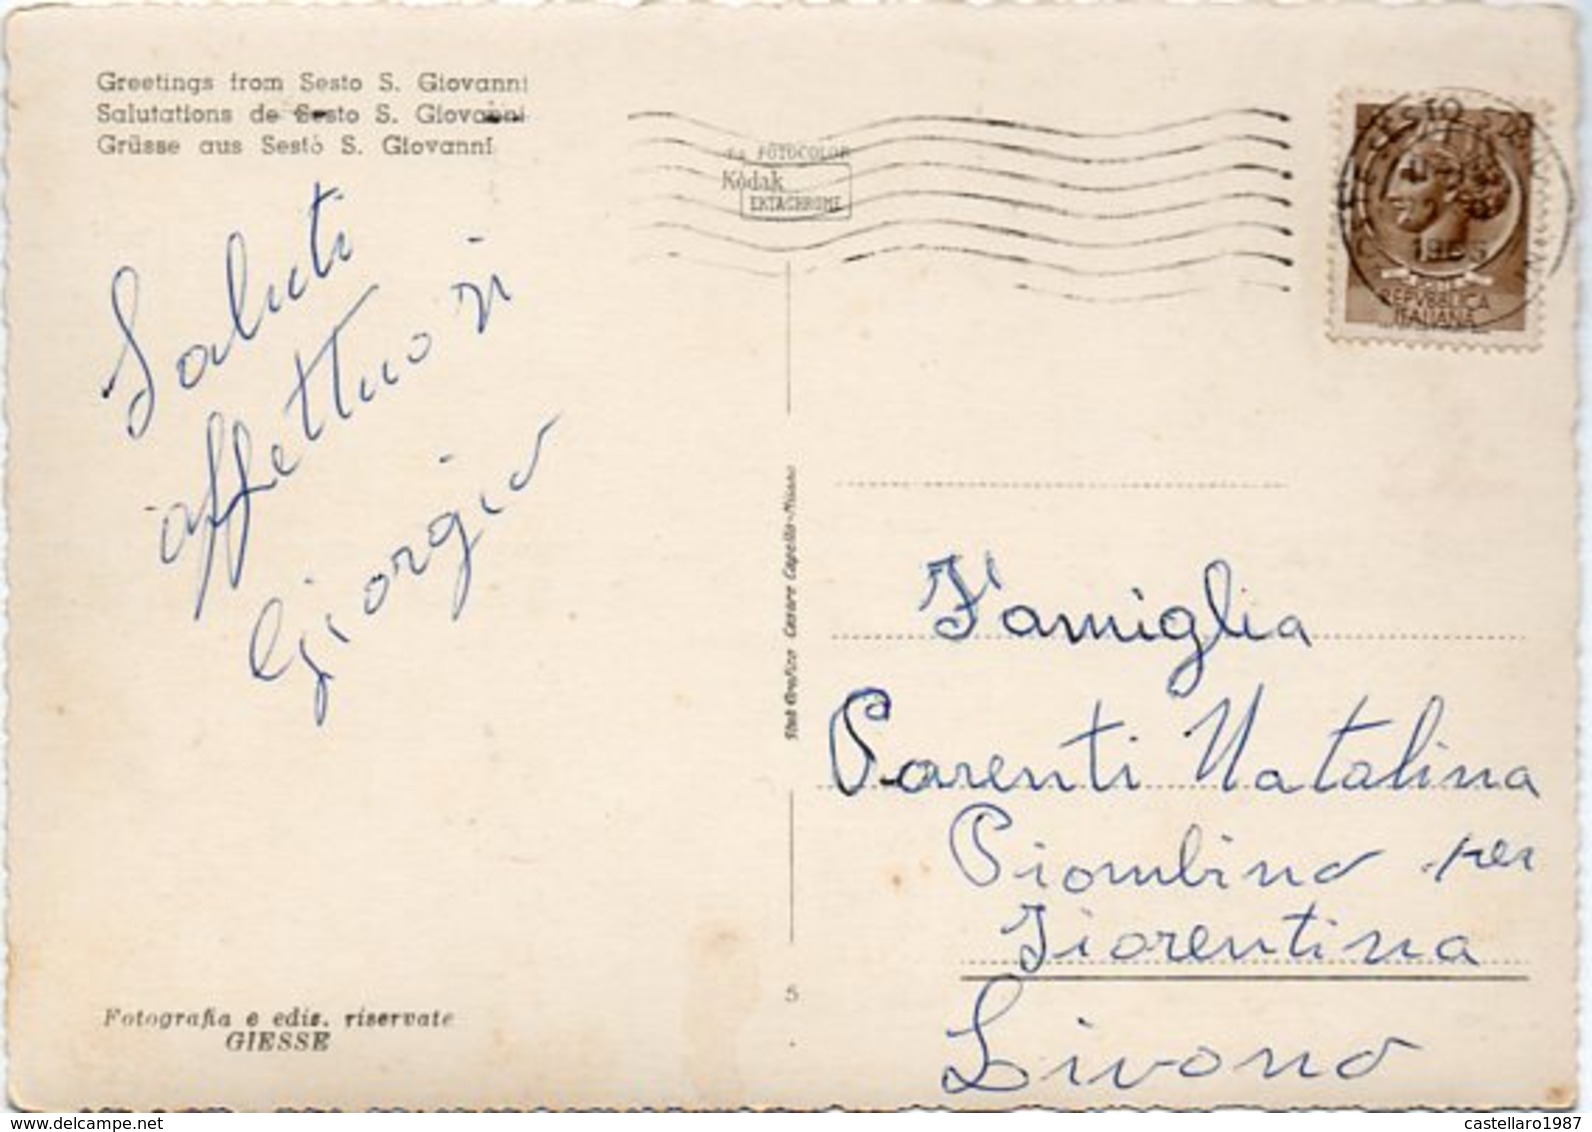 Greetings from Sesto S. Giovanni
Salutations de Sesto S. Giovanni
Grüsse aus Sesto S. Giovanni
Saluti
affettuosi
Giorgio
Fotografia e ediz. riservate
GIESSE
Stab Grafico Cesare Capello-Milano
5
FOTOCOLOR
Kodak
EKTACHROME
SESTO
1966
REPVBBLICA
ITALIANA
Famiglia
Parenti Natalina
Piombino per
Fiorentina
Livono
www.delcampe.net
castellaro1987